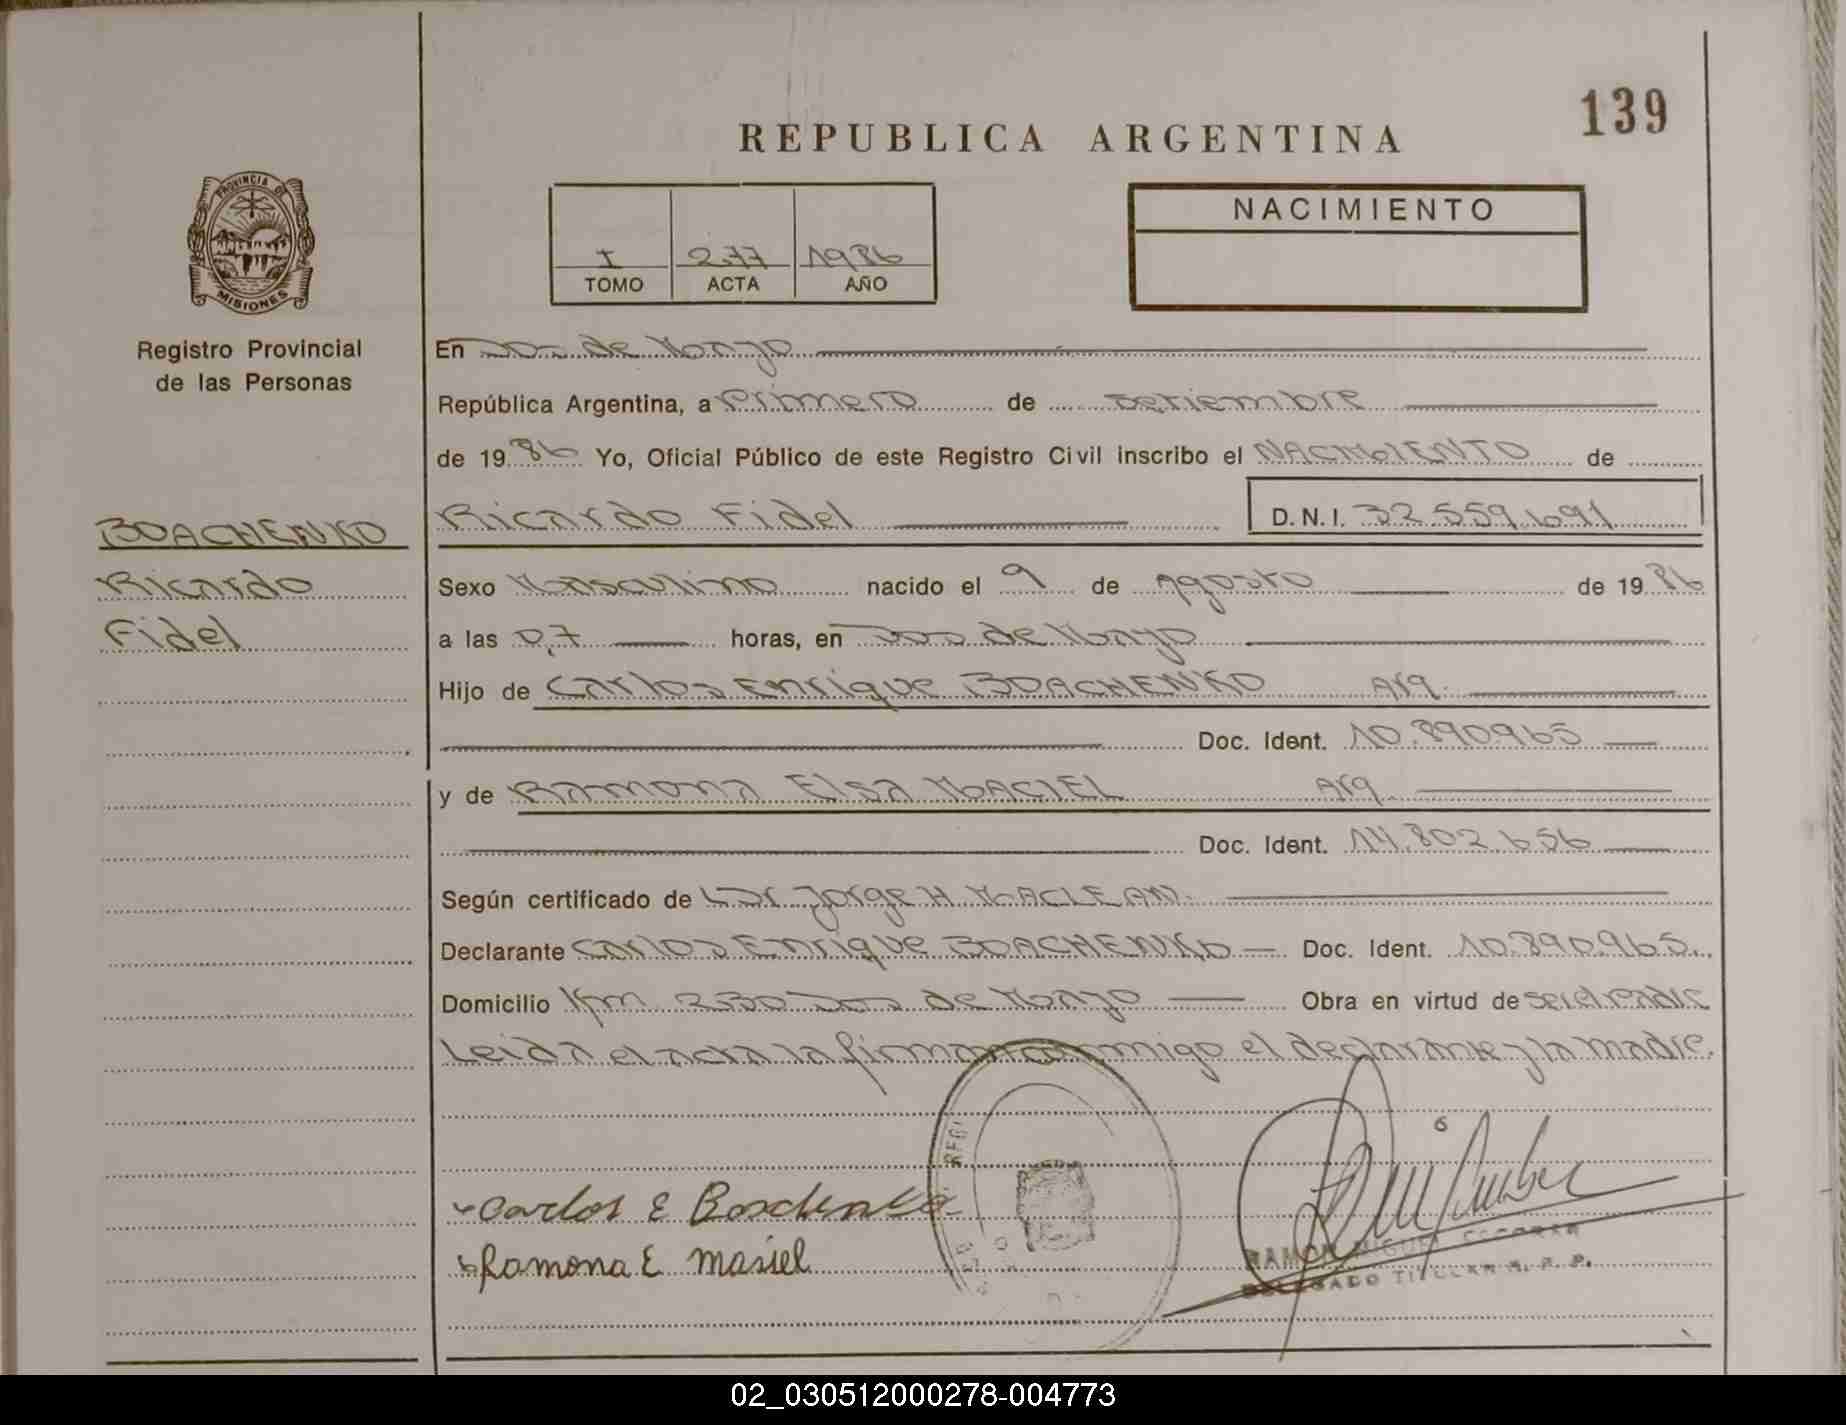 139
REPUBLICA ARGENTINA
PROVINCIA DE
MISIONES
Registro Provincial
de las Personas
NACIMIENTO
I 277 1986
TOMO ACTA AÑO
En Dos de Mayo
República Argentina, a Primero de Setiembre
de 1986 Yo, Oficial Público de este Registro Civil inscribo el NACIMIENTO de
BOACHENKO
Ricardo Fidel D.N.I. 32.559.691
Ricardo
Fidel
Sexo Masculino nacido el 9 de Agosto de 1986
a las 0,7 horas, en Dos de Mayo
Hijo de Carlos Enrique BOACHENKO Arg.
Doc. Ident. 10.890.965
y de Ramona Elsa MACIEL Arg.
Doc. Ident. 14.802.656
Según certificado de Dr Jorge H MACLEAN.
Declarante Carlos Enrique BOACHENKO Doc. Ident. 10.890.965.
Domicilio Km 230 Dos de Mayo Obra en virtud de ser el Padre
Leida el acta la firman conmigo el declarante y la madre.
Carlos E Boschenko
Ramona E masiel
RAMON MIGUEL ESCOBAR
DELEGADO TITULAR R. P. P.
02_030512000278-004773